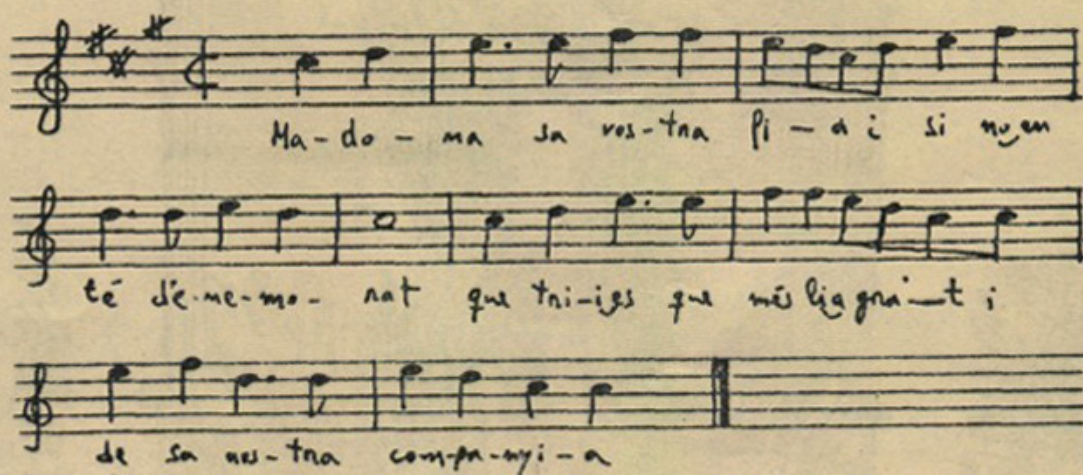 Ma-do-na sa vos-tra fi-a i si nu en
té d'e-ne-mo-rat que tri-igs que més li agra-t i
de sa nos-tra com-pa-nyi-a